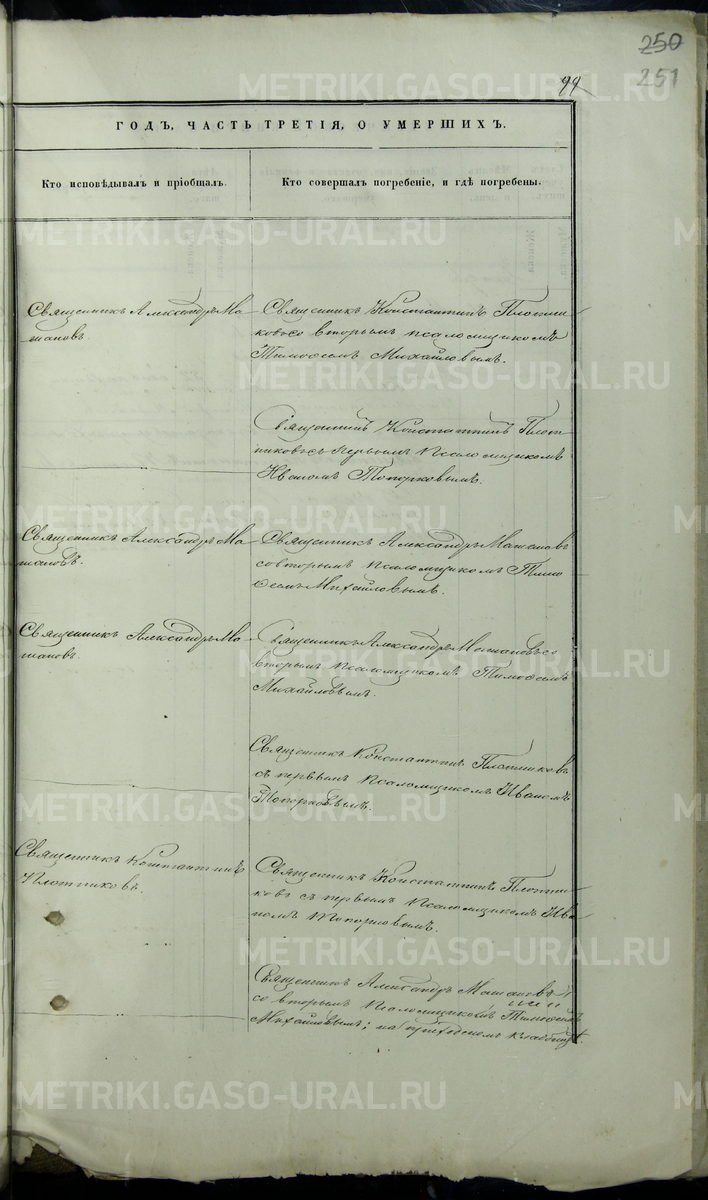 250
251
99
ГОДЪ, ЧАСТЬ ТРЕТІЯ, О УМЕРШИХЪ.
Кто исповѣдывалъ и пріобщалъ.
Кто совершалъ погребеніе, и гдѣ погребены.
Священникъ Александръ Ма-
шановъ.
Священникъ Константинъ Плотни-
ковъ со вторымъ псаломщикомъ
Тимофеемъ Михайловымъ.
Священникъ Константинъ Плот-
никовъ съ первымъ Псаломщикомъ
Иваномъ Топорковымъ.
Священникъ Александръ Ма-
шановъ.
Священникъ Александръ Машановъ
со вторымъ Псаломщикомъ Тимо-
феемъ Михайловымъ.
Священникъ Александръ Ма-
шановъ.
Священникъ Александръ Машановъ со
вторымъ Псаломщикомъ Тимофеемъ
Михайловымъ.
Священникъ Константинъ Плотниковъ
съ первымъ Псаломщикомъ Иваномъ
Топорковымъ.
Священникъ Константинъ
Плотниковъ.
Священникъ Константинъ Плотни-
ковъ съ первымъ Псаломщикомъ Ива-
номъ Топорковымъ.
Священникъ Александръ Машановъ
со вторымъ Псаломщикомъ Тимофеемъ
Михайловымъ; на приходскомъ кладбищѣ
METRIKI.GASO-URAL.RU